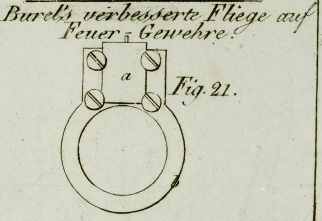 Burel's verbesserte Fliege auf
Feuer-Gewehre.
a
Fig. 21.
b